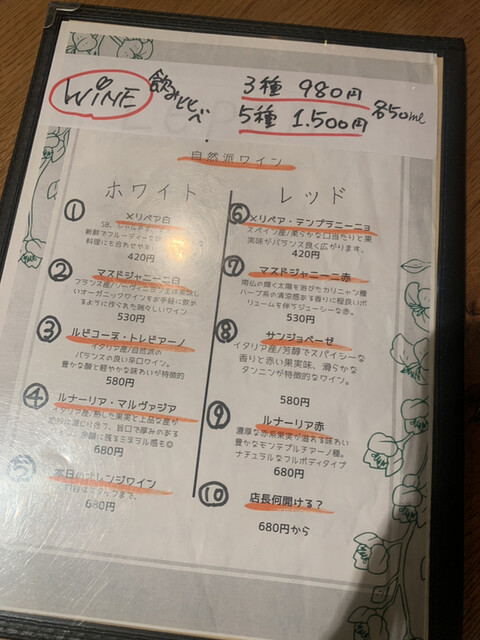 WINE
飲みくらべ
3種 980円
5種 1.500円
各50ml
自然派ワイン
ホワイト
① メリベア白
420円
② マスドジャニーニ白
530円
③ ルビコーネ・トレビアーノ
イタリア産/自然派の
バランスの良い辛口ワイン。
豊かな酸と軽やかな味わいが特徴的
580円
④ ルナーリア・マルヴァジア
イタリア産/熟した果実と上品な渋が
余韻に残るミネラル感も◎
680円
⑤ 本日のオレンジワイン
680円
レッド
⑥ メリベア・テンプラニーニョ
スペイン産/柔らかな口当たりと果
実味がバランス良く広がります。
420円
⑦ マスドジャニーニ赤
南仏の輝く太陽を浴びたカリニャン種
ハーブ系の清涼感ある香りに程良いボ
リュームを伴うジューシーな赤。
530円
⑧ サンジョベーゼ
イタリア産/芳醇でスパイシーな
香りと赤い果実味、滑らかな
タンニンが特徴的なワイン。
580円
⑨ ルナーリア赤
濃厚な赤系果実が溢れる味わい
豊かなモンテプルチアーノ種。
ナチュラルなフルボディタイプ
680円
⑩ 店長何開ける？
680円から